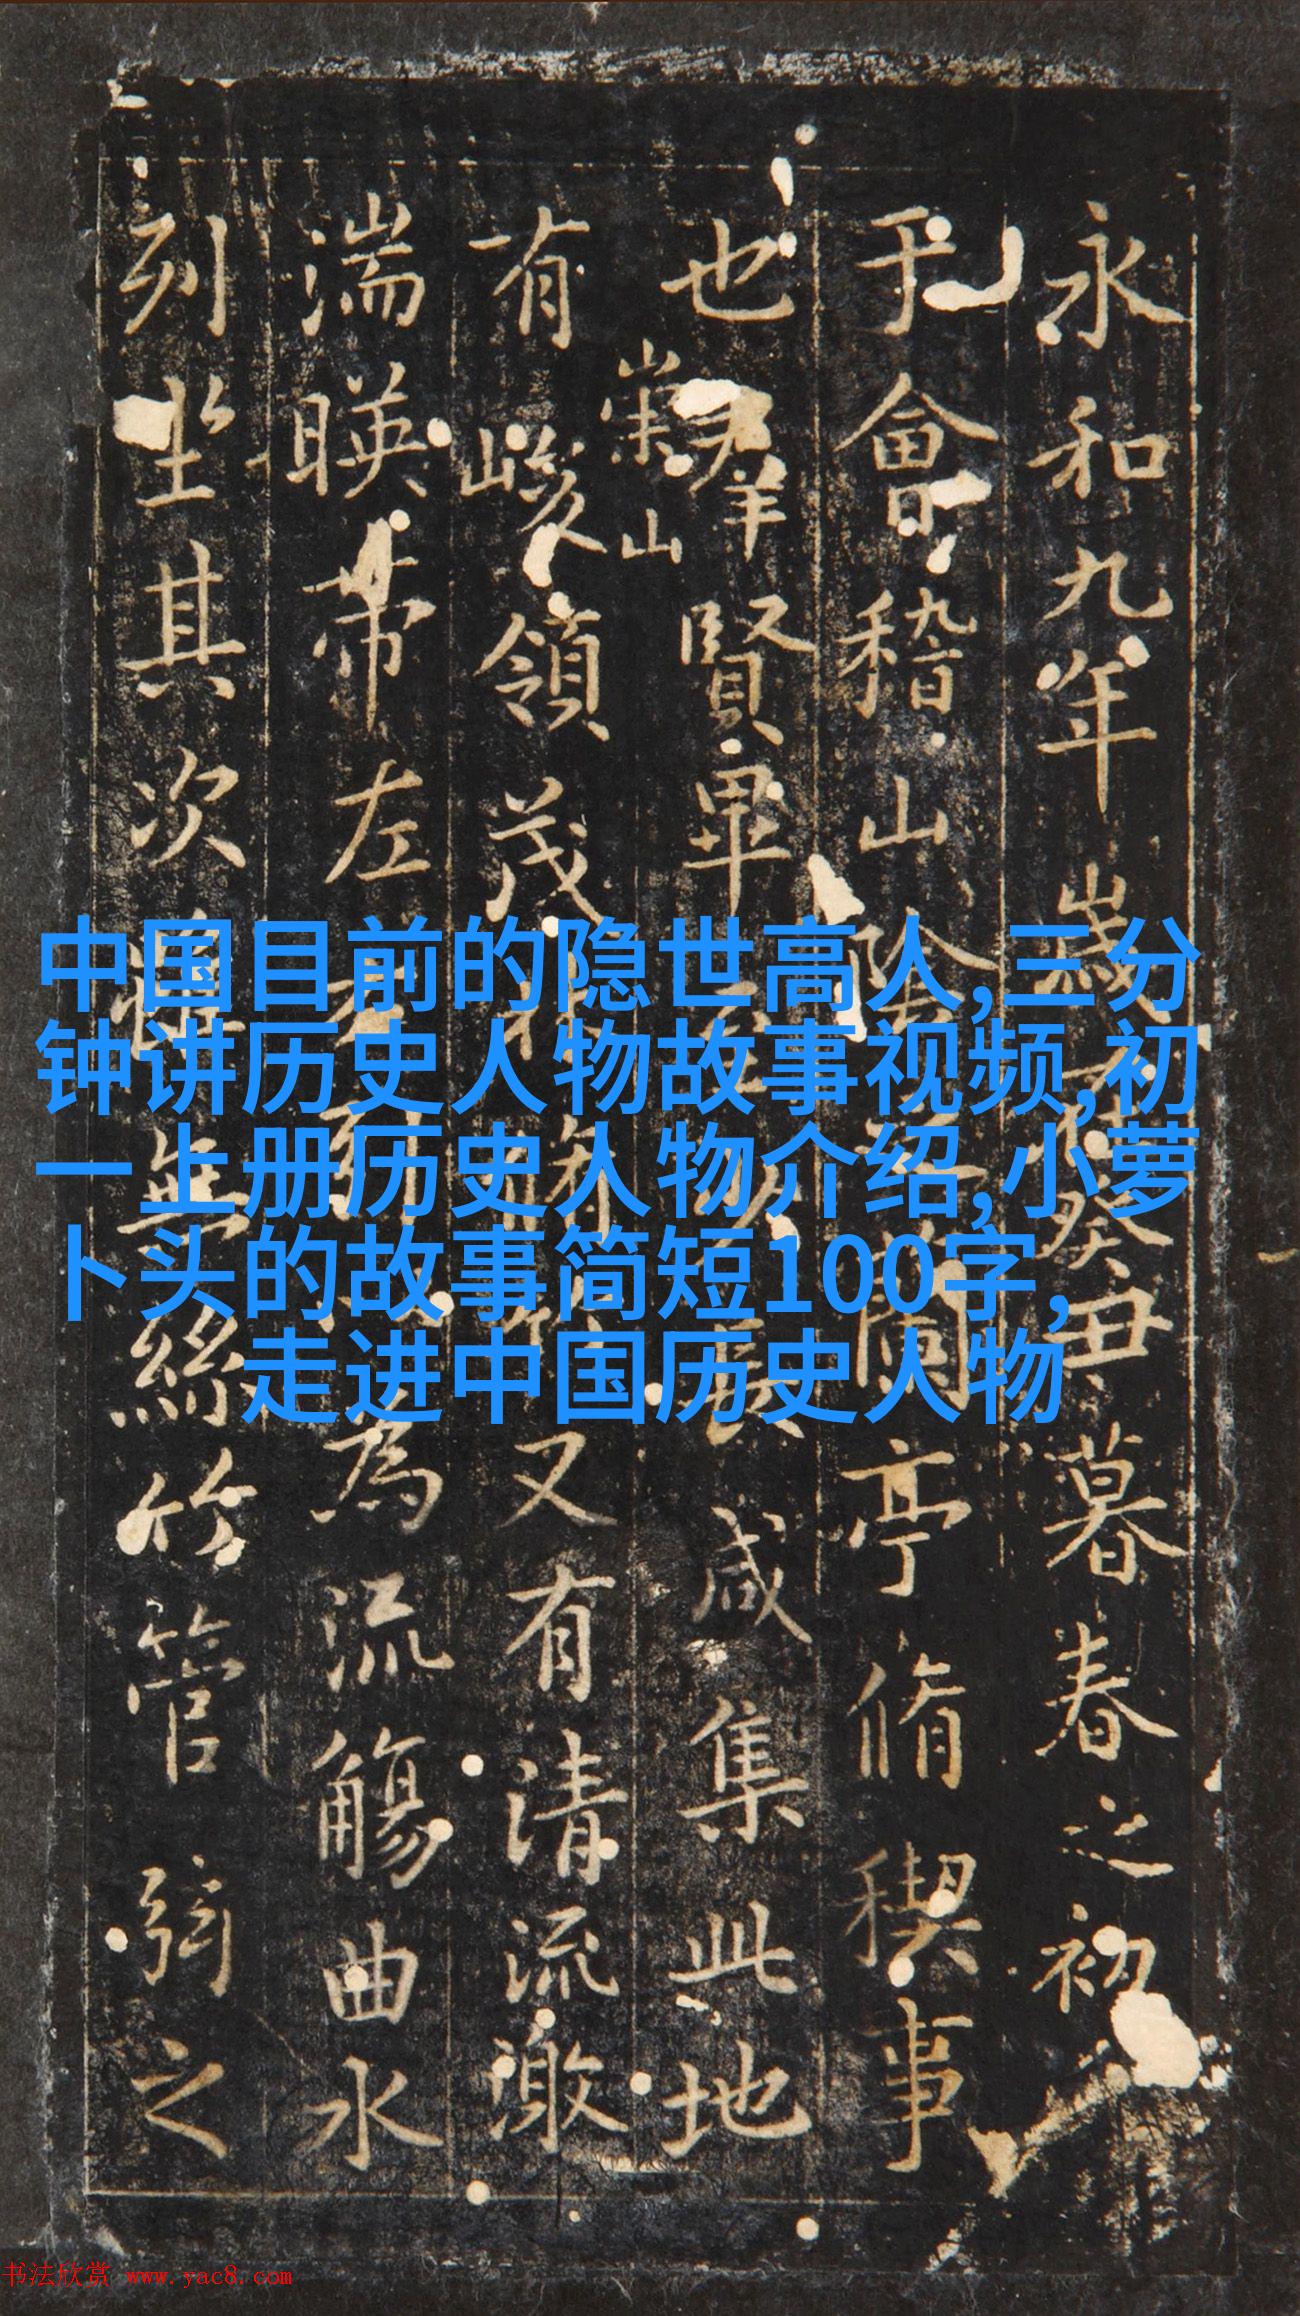 永和九年歲在癸丑暮春之初
于會稽山陰之蘭亭脩稧事
也羣賢畢至少長咸集此地
有崇山峻領茂林脩竹又有清流激
湍暎帶左右引以為流觴曲水
列坐其次雖無絲竹管弦之
中国目前的隐世高人,三分
钟讲历史人物故事视频,初
一上册历史人物介绍,小萝
卜头的故事简短100字,
走进中国历史人物
书法欣赏 www.yac8.com